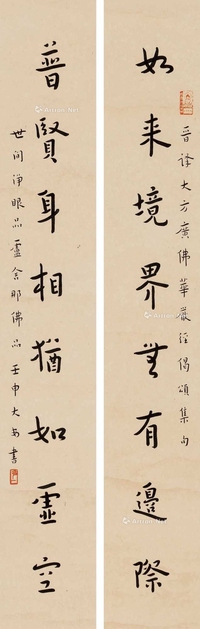 如来境界无有邊際
晉譯大方廣佛華嚴経偈頌集句
普賢身相猶如虛空
世间淨眼品盧舍那佛品壬申大安書